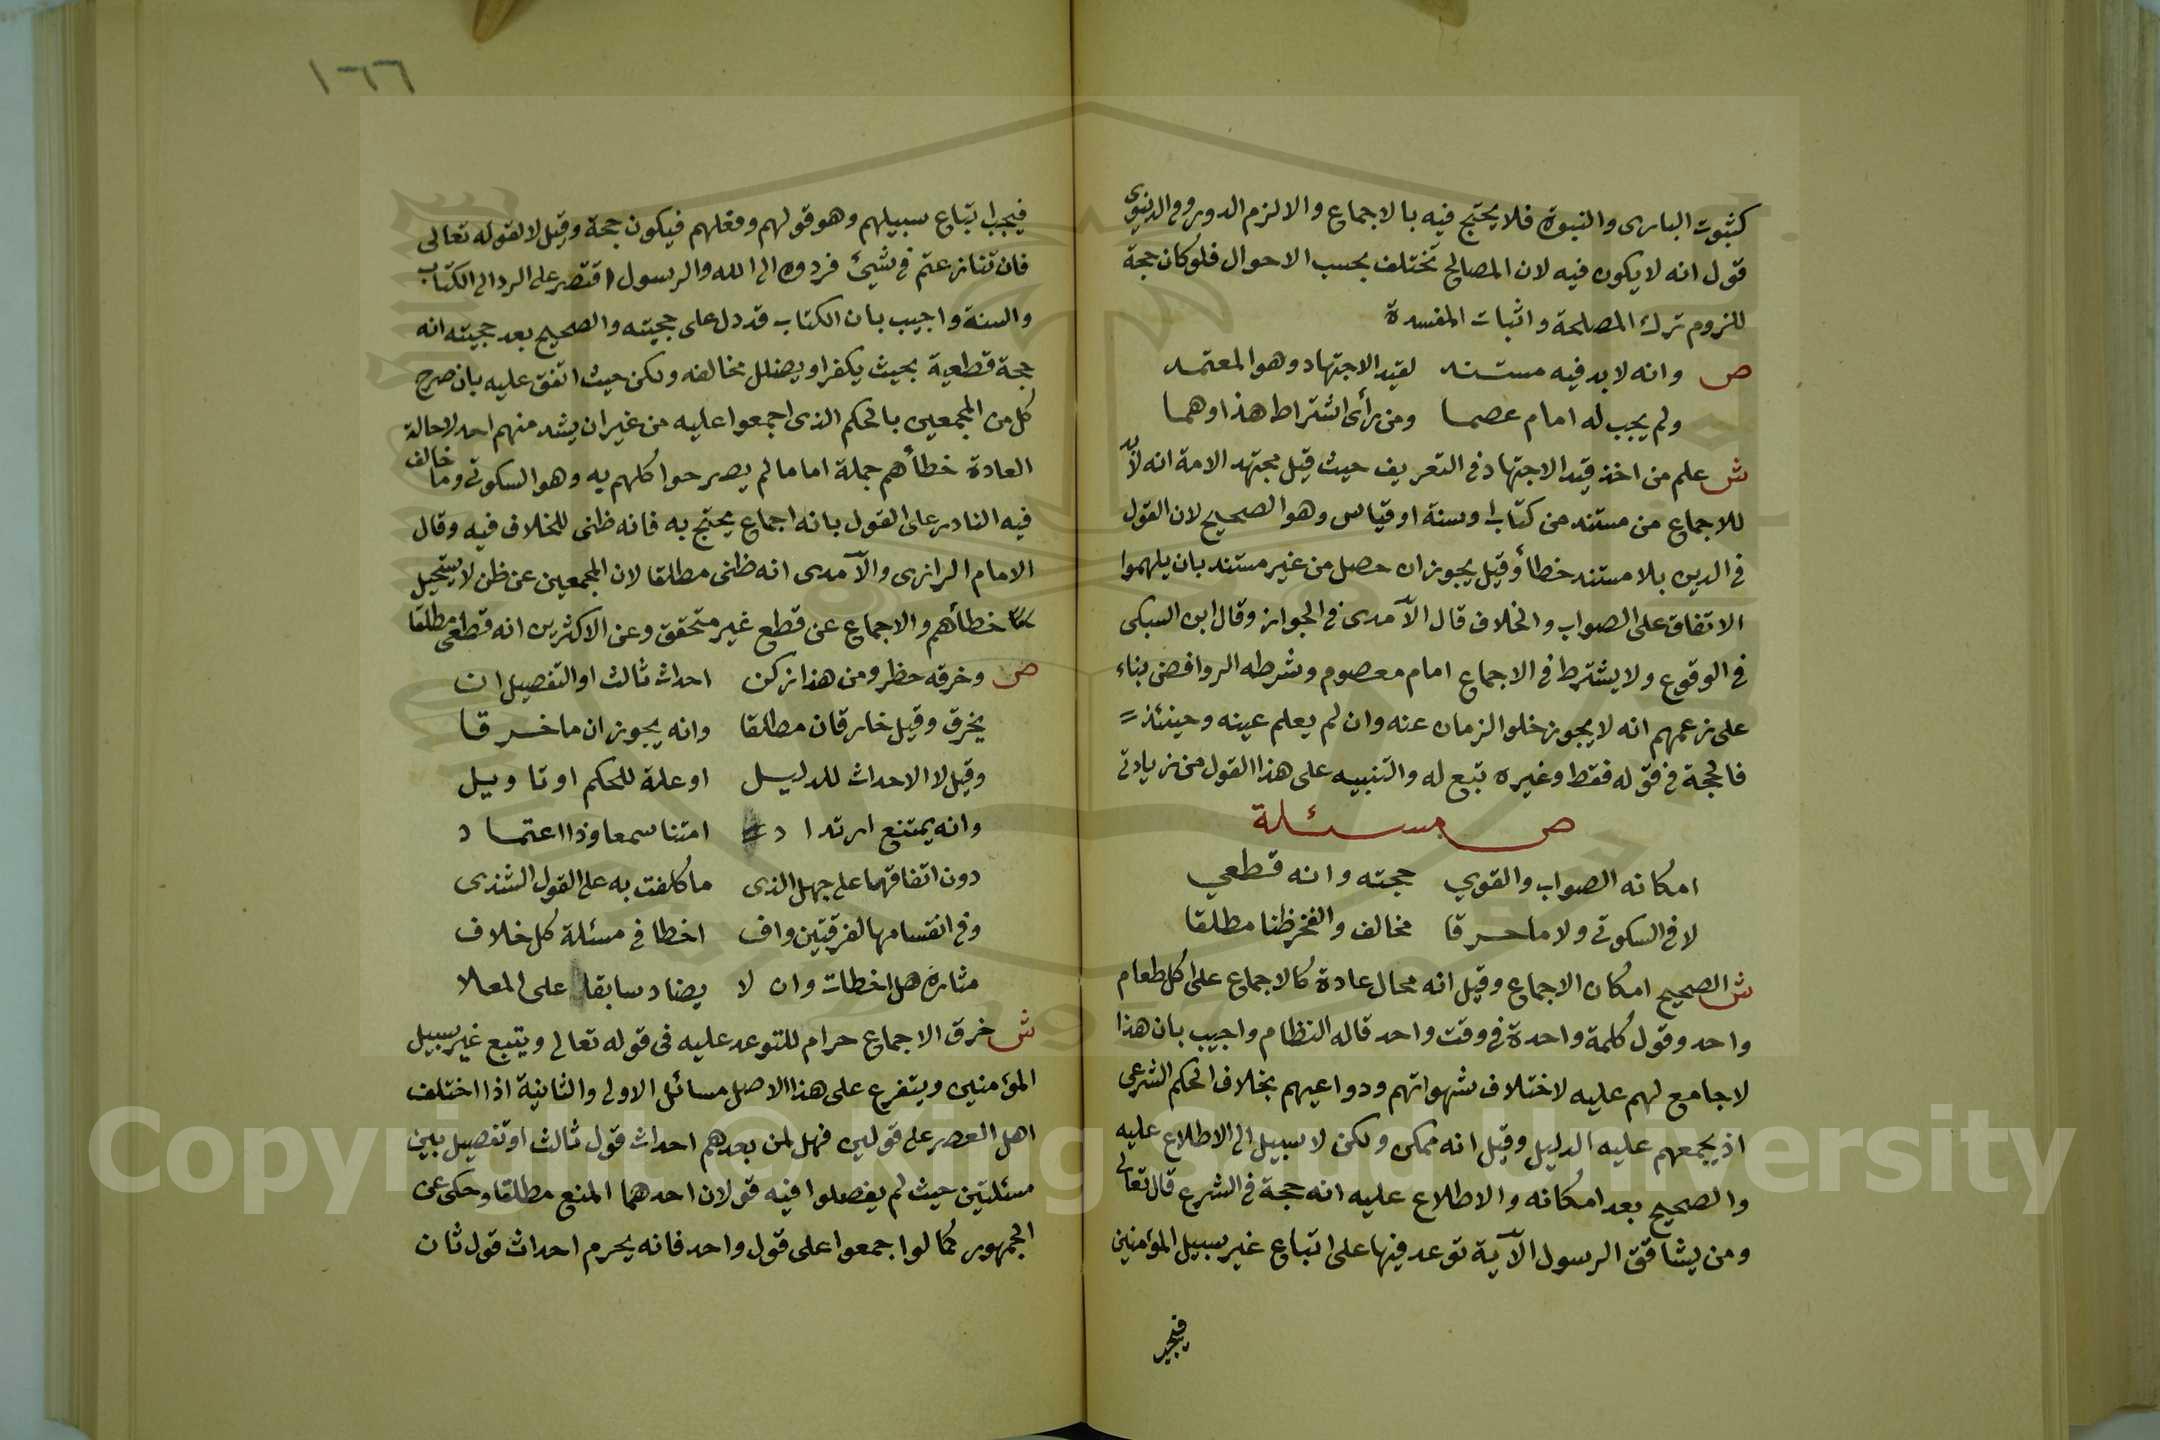 كثبوت البارى والنبوة فلا يحتج فيه بالاجماع والا لزم الدور وفى الدنيوى
قول انه لا يكون فيه لان المصالح تختلف بحسب الاحوال فلو كان حجة
للزوم ترك المصلحة واثبات المفسدة
ص وانه لا بد فيه مستند لقيد الاجتهاد وهو المعتمد
ولم يجب له امام عصما ومن رأى اشتراط هذا وهما
ش علم من اخذ قيد الاجتهاد فى التعريف حيث قيل مجتهد الامة انه لا بد
للاجماع من مستند من كتاب او سنة او قياس وهو الصحيح لان القول
فى الدين بلا مستند خطأ وقيل يجوز ان حصل من غير مستند بان يلهموا
الاتفاق على الصواب والخلاف قال الآمدى فى الجواز وقال ابن السبكى
فى الوقوع ولا يشترط فى الاجماع امام معصوم وشرطه الروافض بناء
على زعمهم انه لا يجوز خلو الزمان عنه وان لم يعلم عينه وحينئذ
فالحجة فى قوله فقط وغيره تبع له والتنبيه على هذا القول من زيادتى
ص مسئلة
امكانه الصواب والقوي حجته وانه قطعي
لا فى السكوتى ولا ما خرقا مخالف والفخر ظنا مطلقا
ش الصحيح امكان الاجماع وقيل انه محال عادة كالاجماع على اكل طعام
واحد وقول كلمة واحدة فى وقت واحد قاله النظام واجيب بان هذا
لا جامع لهم عليه لاختلاف شهواتهم ودواعيهم بخلاف الحكم الشرعى
اذ يجمعهم عليه الدليل وقيل انه ممكن ولكن لا سبيل الى الاطلاع عليه
والصحيح بعد امكانه والاطلاع عليه انه حجة فى الشرع قال تعالى
ومن يشاقق الرسول الآية توعد فيها على اتباع غير سبيل المؤمنين
فيجب
١٦٦
فيجب اتباع سبيلهم وهو قولهم وفعلهم فيكون حجة وقيل لا لقوله تعالى
فان تنازعتم فى شيئ فردوه الى الله والرسول اقتصر على الرد الى الكتاب
والسنة واجيب بان الكتاب قد دل على حجيته والصحيح بعد حجيته انه
حجة قطعية بحيث يكفر او يضلل مخالفه ولكن حيث اتفق عليه بان صرح
كل من المجمعين بالحكم الذى اجمعوا عليه من غير ان يشذ منهم احد لاحالة
العادة خطأهم جملة اما ما لم يصرحوا كلهم به وهو السكوتى وما خالف
فيه النادر على القول بانه اجماع يحتج به فانه ظنى للخلاف فيه وقال
الامام الرازى والآمدى انه ظنى مطلقا لان المجمعين عن ظن لا يستحيل
خطأهم والاجماع عن قطع غير متحقق وعن الاكثرين انه قطعى مطلقا
ص وخرقه حظر ومن هذا زكن احداث ثالث او التفصيل ان
يخرق وقيل خارقان مطلقا وانه يجوز ان ما خرقا
وقيل لا الاحداث للدليل او علة للحكم او تاويل
وانه يمتنع ارتداد امتنا سمعا وذا اعتماد
دون اتفاقهما على جهل الذى ما كلفت به على القول الشذى
وفى انقسامها لفرقتين واف اخطا فى مسئلة كل خلاف
مثاره هل اخطات وان لا يضاد سابقا على المعلا
ش خرق الاجماع حرام للتوعد عليه فى قوله تعالى ويتبع غير سبيل
المؤمنين ويتفرع على هذا الاصل مسائل الاولى والثانية اذا اختلف
اهل العصر على قولين فهل لمن بعدهم احداث قول ثالث او تفصيل بين
مسئلتين حيث لم يفصلوا فيه قولان احدهما المنع مطلقا وحكى عن
الجمهور كما لو اجمعوا على قول واحد فانه يحرم احداث قول ثان
Copyright © King Saud University